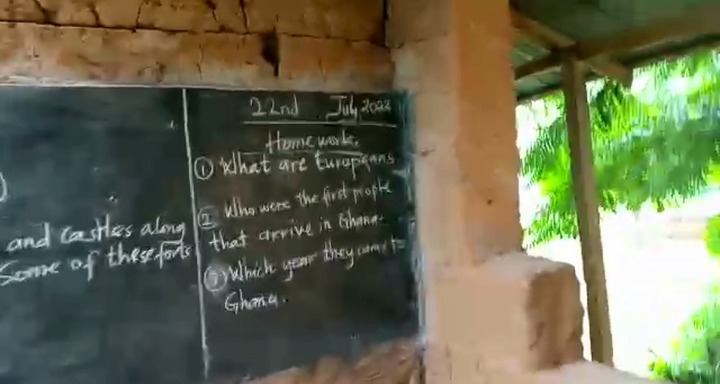 and castles along
Some of these forts
22nd July 2022
Homework.
① What are Europeans
② Who were the first people
that arrive in Ghana.
③ Which year they came to
Ghana.